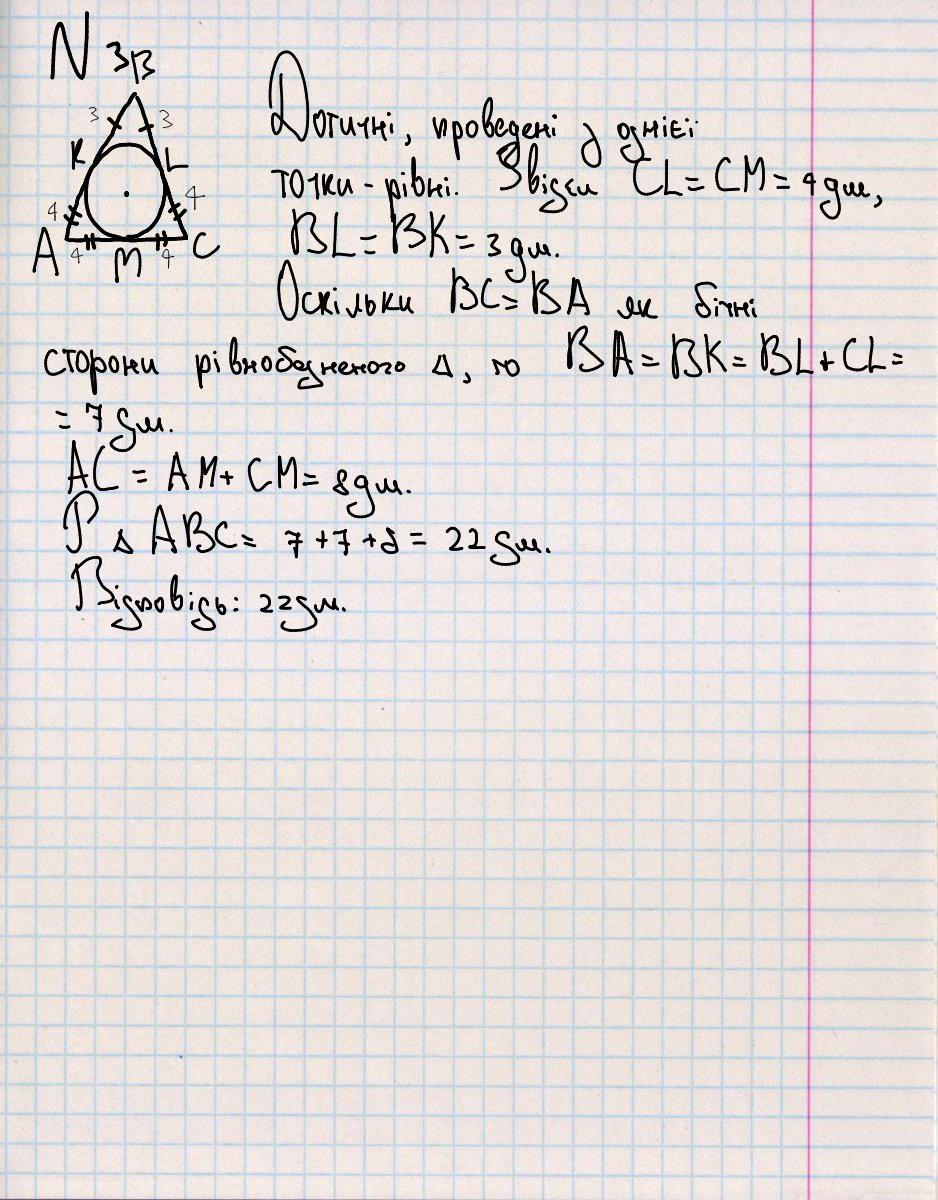 N 3
B
3 3
K L
4 4
A 4 M 4 C
Дотичні, проведені з однієї
точки - рівні. Звідси CL = CM = 4 дм,
BL = BK = 3 дм.
Оскільки BC = BA як бічні
сторони рівнобедреного Δ, то BA = BK = BL + CL =
= 7 дм.
AC = AM + CM = 8 дм.
P Δ ABC = 7 + 7 + 8 = 22 дм.
Відповідь: 22 дм.